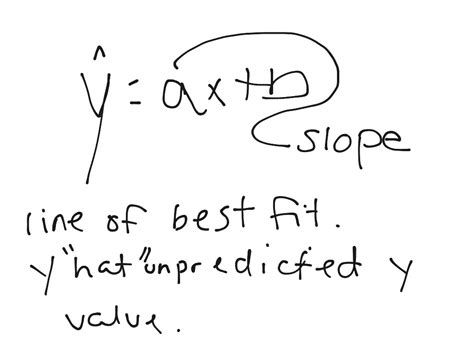 ŷ = ax+b
slope
line of best fit.
y "hat" unpredicted y
value.